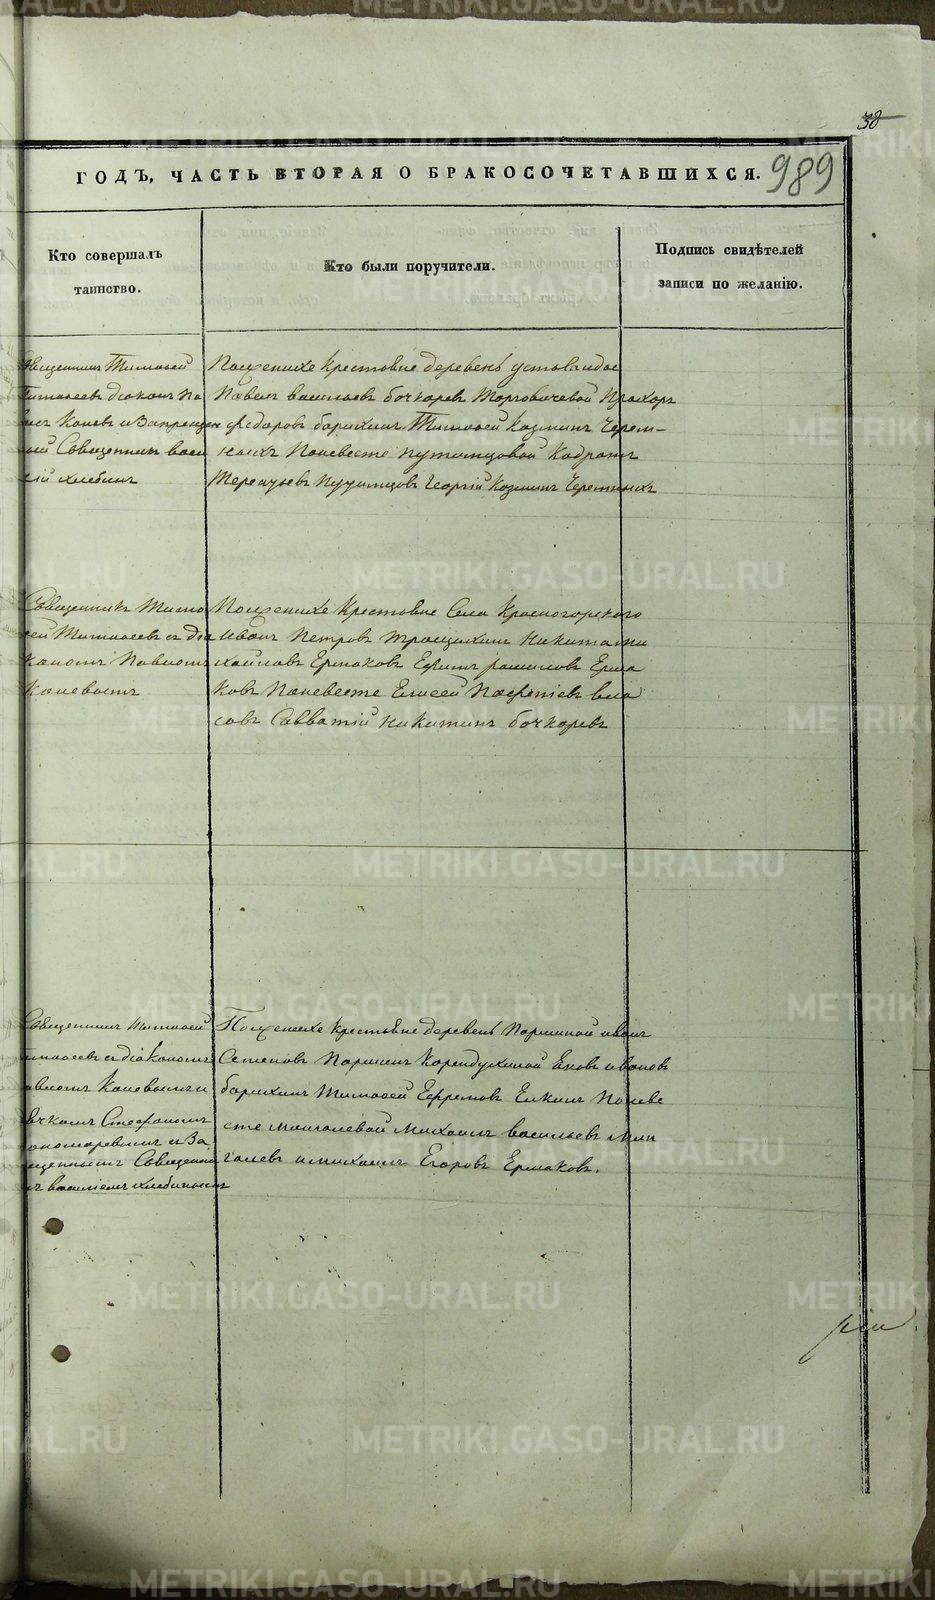 38
989
ГОДЪ, ЧАСТЬ ВТОРАЯ О БРАКОСОЧЕТАВШИХСЯ.
Кто совершалъ
таинство.
Кто были поручители.
Подпись свидѣтелей
записи по желанію.
Тимофей
Тимофеевъ діаконъ Па
Коневъ и Запрещен
ной Священникъ Васи
лій Хлебинъ
По женихе крестьяне деревень
Павелъ Васильевъ Бочкаревъ Прохоръ
Федоровъ Барыкинъ Тимофей Козминъ Черем-
ныхъ По невесте Путимцовой Кодратъ
Терентьевъ Путимцовъ Георгій Козминъ Черемныхъ
Священникъ Тимо
фей Тимофеевъ съ діа
кономъ Павломъ
Коневымъ
По женихе Крестьяне Села Красногорскаго
Иванъ Петровъ Никита Ми
хайловъ Ермаковъ Ермa
ковъ По невесте Елисей Вла
совъ Савватій Никитинъ Бочкаревъ
Священникъ Тимофей
Тимофеевъ съ діакономъ
Павломъ Коневымъ и
дьячкомъ Стефаномъ
Пономаревымъ и За
прещеннымъ Священни
комъ Василіемъ Хлебинымъ
По женихе крестьяне деревень Паршиной Иванъ
Семеновъ Паршинъ Иоковъ Ивановъ
Барыкинъ Тимофей Ефремовъ Елкинъ По неве
сте Мангилевой Михаилъ Васильевъ Ман
гилевъ и Михаилъ Егоровъ Ермаковъ.
METRIKI.GASO-URAL.RU